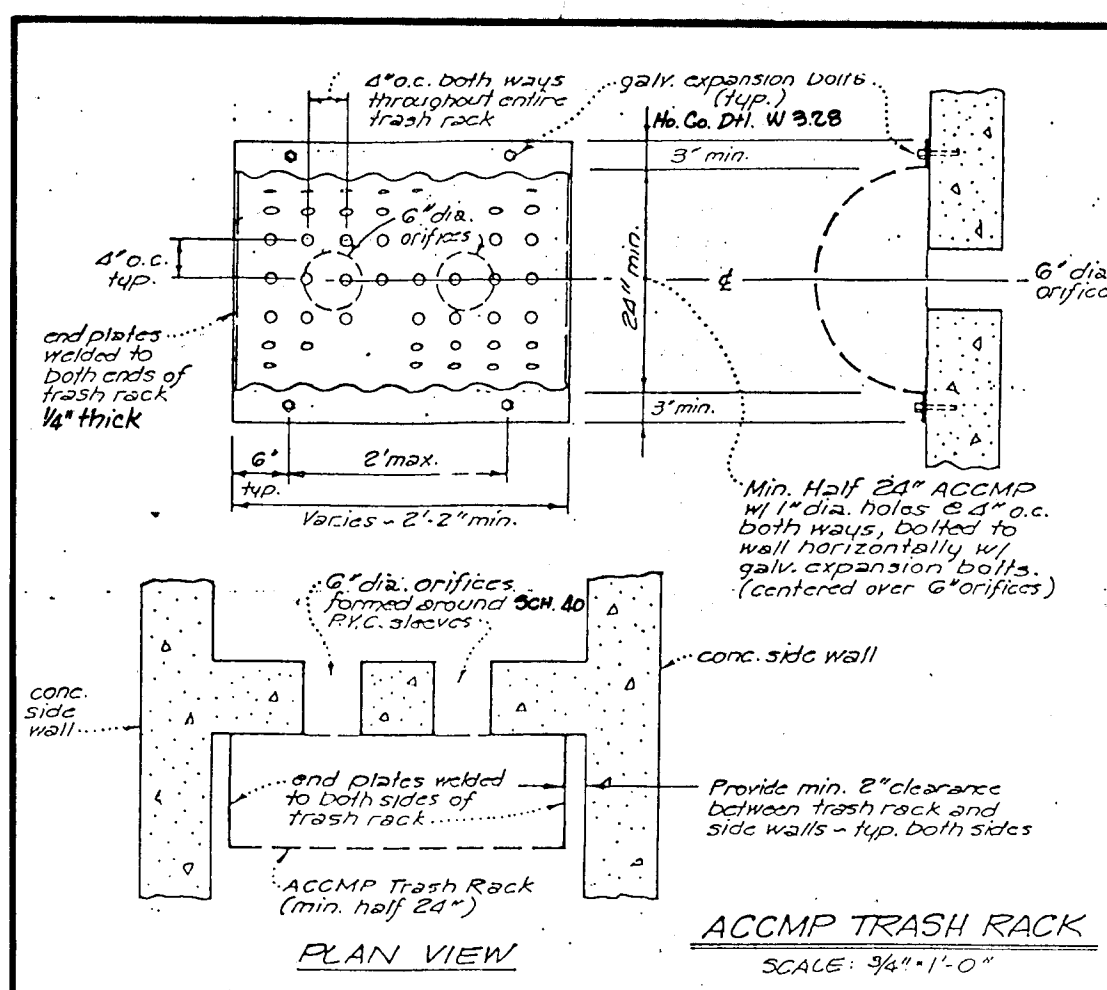 4" o.c. both ways
throughout entire
trash rack
galv. expansion bolts
(typ.)
Ho. Co. Dtl. W 3.28
3" min.
6" dia.
orifices
4" o.c.
typ.
24" min.
℄
6" dia
orifice
end plates
welded to
both ends of
trash rack
1/4" thick
3" min.
6"
typ.
2' max.
Varies ~ 2'-2" min.
Min. Half 24" ACCMP
w/ 1" dia. holes @ 4" o.c.
both ways, bolted to
wall horizontally w/
galv. expansion bolts.
(centered over 6" orifices)
6" dia. orifices
formed around SCH. 40
P.V.C. sleeves
conc. side wall
conc.
side
wall
end plates welded
to both sides of
trash rack
Provide min. 2" clearance
between trash rack and
side walls ~ typ. both sides
ACCMP Trash Rack
(min. half 24")
PLAN VIEW
ACCMP TRASH RACK
SCALE: 3/4" = 1'-0"